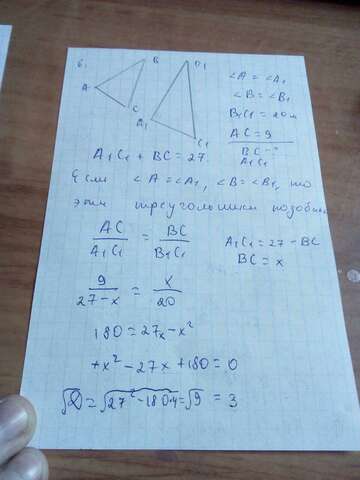 б₁
B
D1
A
C
A₁
C₁
∠A = ∠A₁
∠B = ∠B₁
B₁C₁ = 20м
AC = 9
BC - ?
A₁C₁
A₁C₁ + BC = 27.
Если ∠A = ∠A₁, ∠B = ∠B₁, то
эти треугольники подобны
AC / A₁C₁ = BC / B₁C₁
A₁C₁ = 27 - BC
BC = x
9 / 27 - x = x / 20
180 = 27x - x²
+x² - 27x + 180 = 0
√D = √27² - 180·4 = √9 = 3